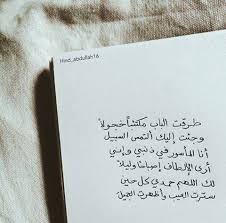 Hind_abdullah16
طرقت الباب مكتئباً خجولاً
وجئت إليك ألتمس السبيل
أنا المأسور في ذنبي وإسمي
أرى الألطاف إصباحاً وليلا
لك اللهم حمدي كل حين
سترت العيب وأظهرت الجميل